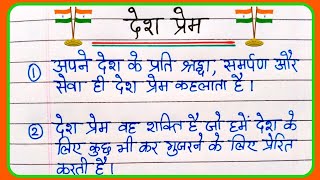 देश प्रेम
① अपने देश के प्रति श्रद्धा, समर्पण और
सेवा ही देश प्रेम कहलाता है।
② देश प्रेम वह शक्ति है जो हमें देश के
लिए कुछ भी कर गुजरने के लिए प्रेरित
करती है।